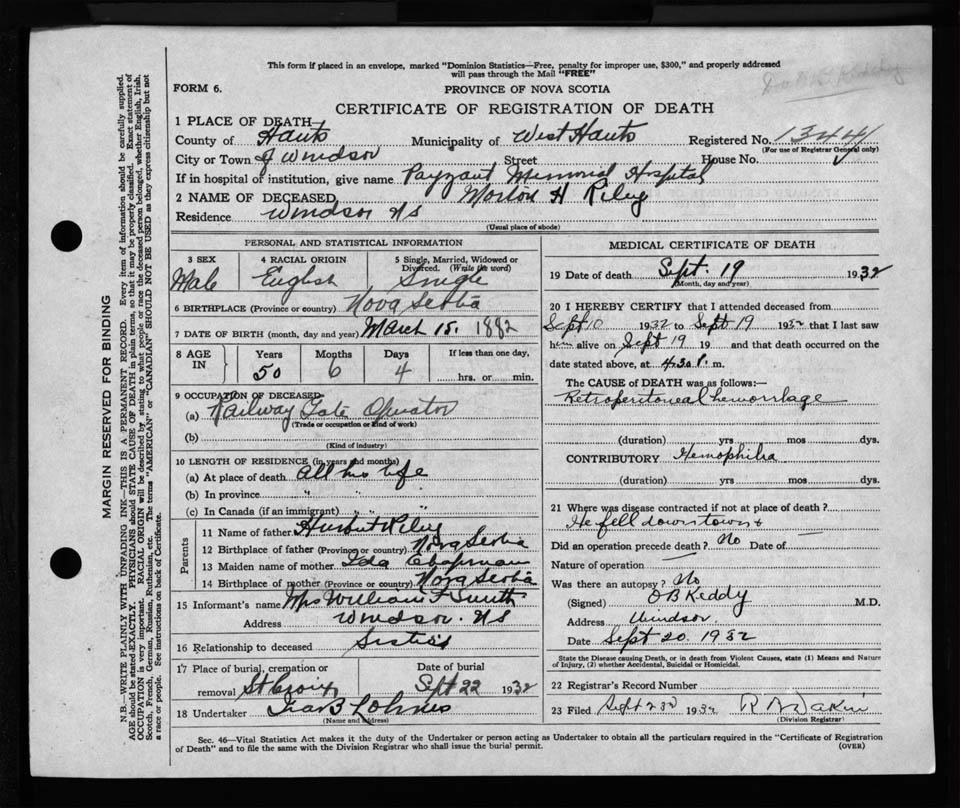 This form if placed in an envelope, marked "Dominion Statistics—Free, penalty for improper use, $300," and properly addressed
will pass through the Mail "FREE"
FORM 6.
PROVINCE OF NOVA SCOTIA
CERTIFICATE OF REGISTRATION OF DEATH
1 PLACE OF DEATH
County of Hants Municipality of West Hants Registered No. 1344
(For use of Registrar General only)
City or Town of Windsor Street House No.
If in hospital or institution, give name Payzant Memorial Hospital
2 NAME OF DECEASED Morton H Riley
Residence Windsor NS
(Usual place of abode)
PERSONAL AND STATISTICAL INFORMATION
3 SEX 4 RACIAL ORIGIN 5 Single, Married, Widowed or
Divorced. (Write the word)
Male English Single
6 BIRTHPLACE (Province or country) Nova Scotia
7 DATE OF BIRTH (month, day and year) March 15, 1882
8 AGE IN Years Months Days If less than one day,
50 6 4 hrs. or min.
9 OCCUPATION OF DECEASED
(a) Railway Gate Operator
(Trade or occupation or kind of work)
(b)
(Kind of industry)
10 LENGTH OF RESIDENCE (in years and months)
(a) At place of death All his life
(b) In province " "
(c) In Canada (if an immigrant) " "
Parents
11 Name of father Riley
12 Birthplace of father (Province or country) Nova Scotia
13 Maiden name of mother Ida Chapman
14 Birthplace of mother (Province or country) Nova Scotia
15 Informant's name Mrs William F Smith
Address Windsor. NS
16 Relationship to deceased Sister
17 Place of burial, cremation or Date of burial
removal St Croix Sept 22 1932
18 Undertaker
(Name and address)
MEDICAL CERTIFICATE OF DEATH
19 Date of death Sept. 19 1932
(Month, day and year)
20 I HEREBY CERTIFY that I attended deceased from
Sept 10 1932 to Sept 19 1932 that I last saw
him alive on Sept 19 19 and that death occurred on the
date stated above, at 4.30 P. m.
The CAUSE of DEATH was as follows:—
Retroperitoneal hemorrhage
(duration) yrs mos dys.
CONTRIBUTORY Hemophilia
(duration) yrs mos dys.
21 Where was disease contracted if not at place of death?
He fell downtown
Did an operation precede death? No Date of —
Nature of operation —
Was there an autopsy? No
(Signed) O B Keddy M.D.
Address Windsor.
Date Sept 20. 1932
State the Disease causing Death, or in death from Violent Causes, state (1) Means and Nature
of Injury, (2) whether Accidental, Suicidal or Homicidal.
22 Registrar's Record Number
23 Filed Sept 1932
(Division Registrar)
Sec. 46—Vital Statistics Act makes it the duty of the Undertaker or person acting as Undertaker to obtain all the particulars required in the "Certificate of Registration
of Death" and to file the same with the Division Registrar who shall issue the burial permit.
(OVER)
MARGIN RESERVED FOR BINDING
N.B—WRITE PLAINLY WITH UNFADING INK—THIS IS A PERMANENT RECORD. Every item of information should be carefully supplied.
AGE should be stated EXACTLY. PHYSICIANS should STATE CAUSE OF DEATH in plain terms, so that it may be properly classified. Exact statement of
OCCUPATION is very important. RACIAL ORIGIN will be described by stating to what people or race the deceased person belonged, whether English, Irish,
Scotch, French, German, Russian, Ruthenian, etc. The terms "AMERICAN" or "CANADIAN" SHOULD NOT BE USED as they express citizenship but not
a race or people. See instructions on back of Certificate.